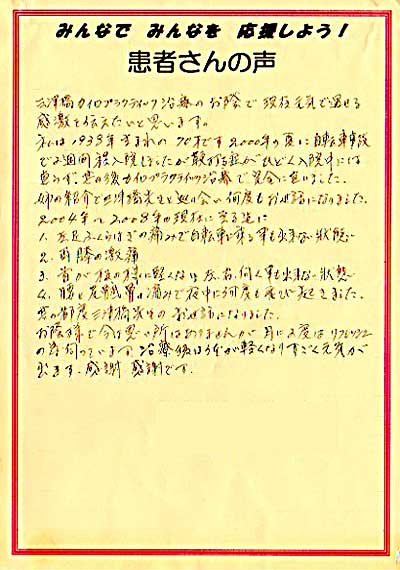 みんなで みんなを 応援しよう！
患者さんの声
三津橋カイロプラクティック治療のお陰で現在元気で過せる
感激を伝えたいと思います。
私は1938年生まれの70才です 2000年の夏に自転車事故
で2週間程入院しましたが 入院中には
其の後カイロプラクティック治療で完全に
姉の紹介で三津橋先生と知り合い何度もお世話になりました。
2004年～2008年の現在に至る迄に
1. 左足ふくらはぎの痛みで自転車に乗る事も出来ない状態
2. 両膝の激痛
3. 首が板の様に 左、右、向く事も出来ない状態
4. 腰と尾骶骨の痛みで夜中に何度も飛び起きました。
其の都度三津橋先生のお世話になりました。
お陰様で今は悪い所はありませんが 月に2度は
治療後は体が軽くなりすごく元気が
出ます。感謝 感謝です。